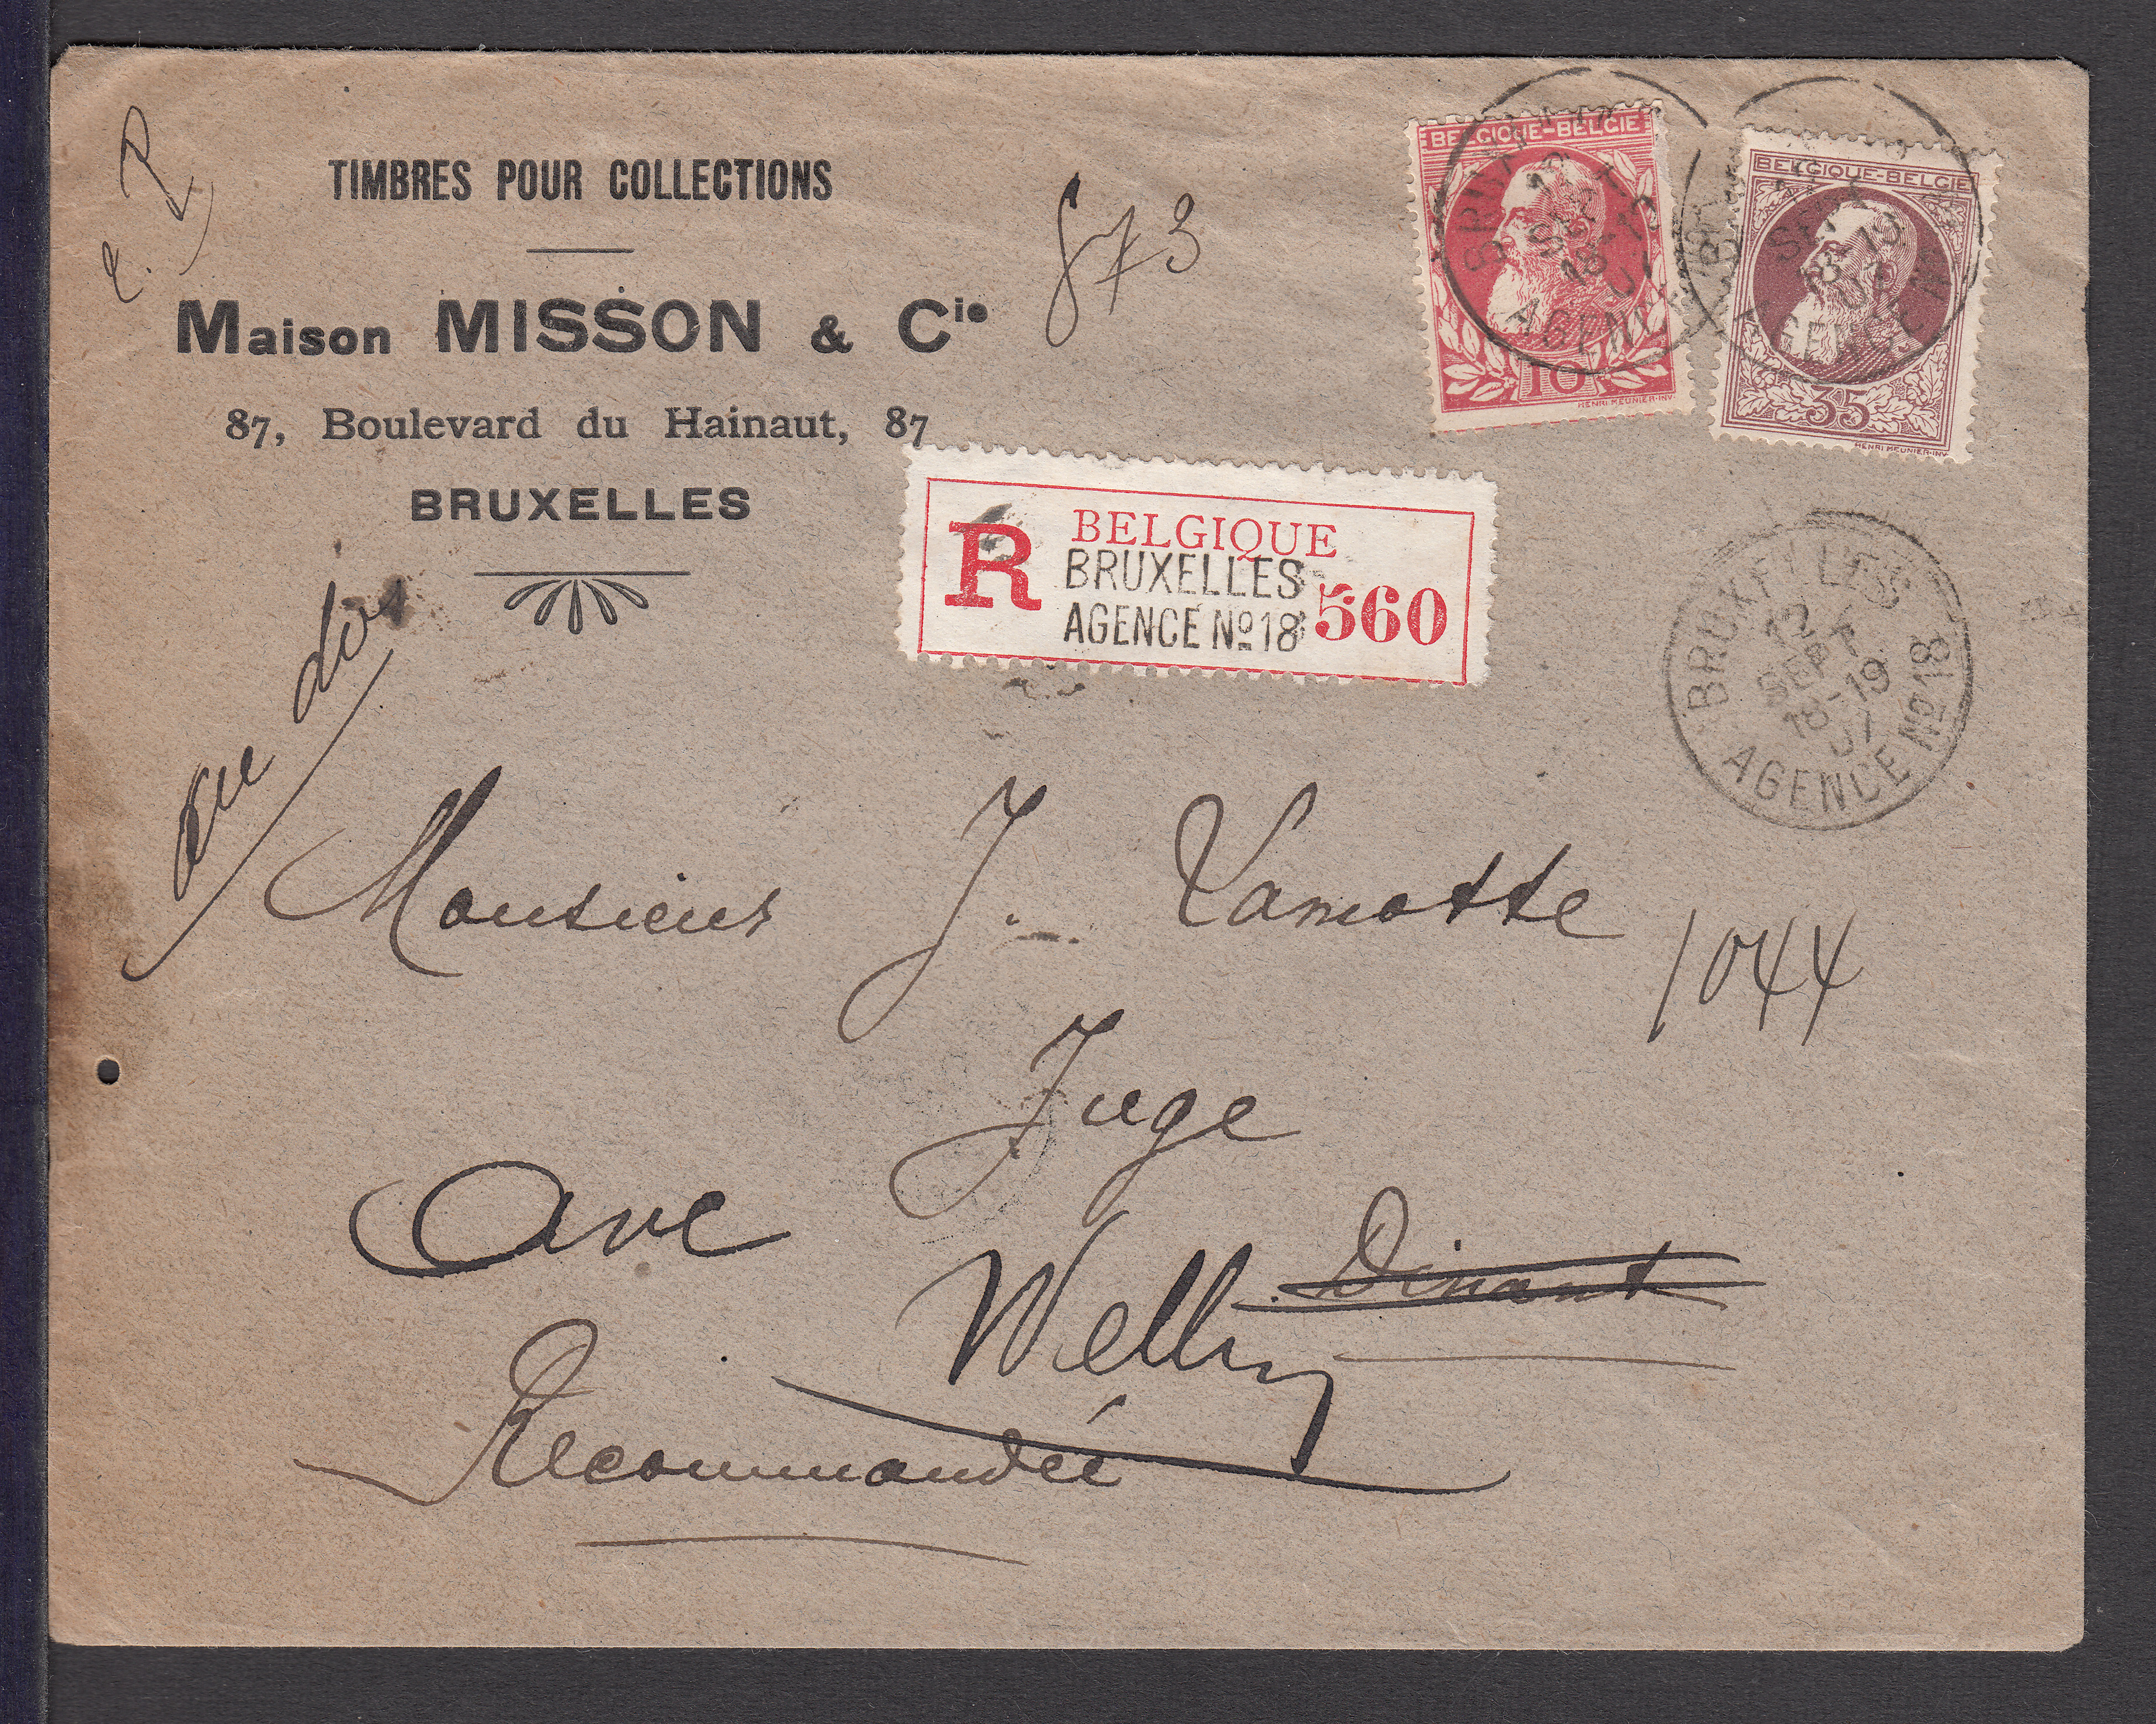 TIMBRES POUR COLLECTIONS
Maison MISSON & Cie
87, Boulevard du Hainaut, 87
BRUXELLES
873
BELGIQUE-BELGIE
10
HENRI MEUNIER-INV.
BELGIQUE-BELGIE
35
HENRI MEUNIER-INV.
R BELGIQUE
BRUXELLES
AGENCE No 18
560
BRUXELLES
12
SEPT
18-19
07
AGENCE No 18
au dos
Monsieur J. Lamotte
1044
Juge
Dinant
Wellin
Recommandée